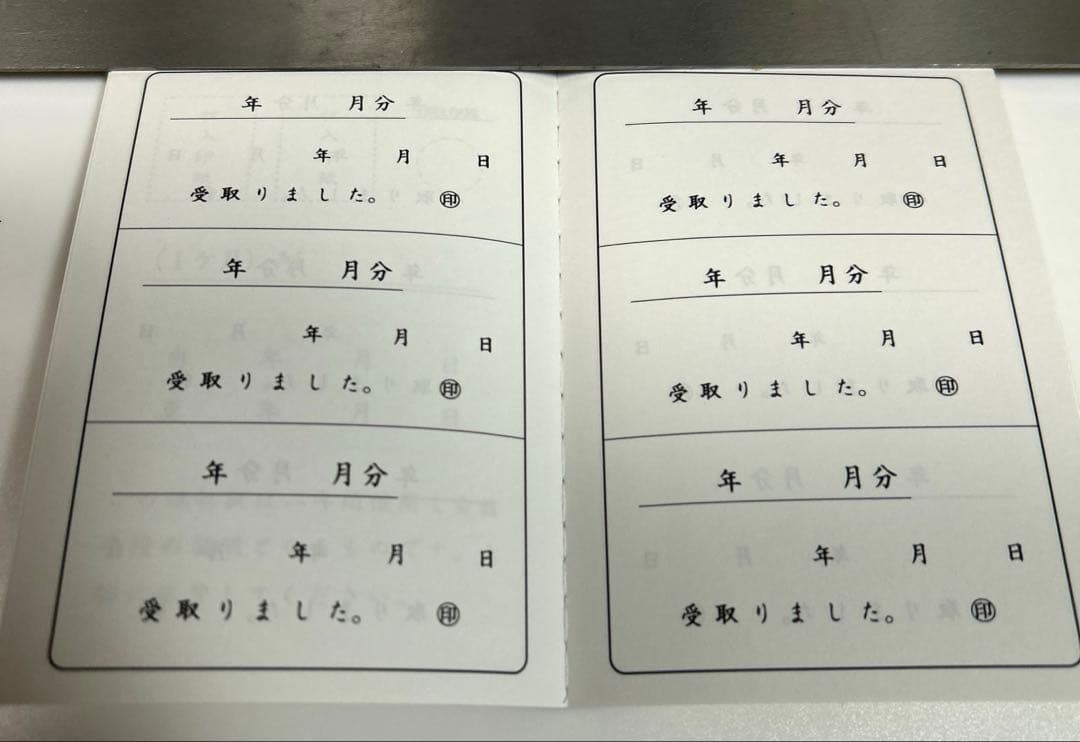 年 月分
年 月 日
受取りました。 ㊞
年 月分
年 月 日
受取りました。 ㊞
年 月分
年 月 日
受取りました。 ㊞
年 月分
年 月 日
受取りました。 ㊞
年 月分
年 月 日
受取りました。 ㊞
年 月分
年 月 日
受取りました。 ㊞